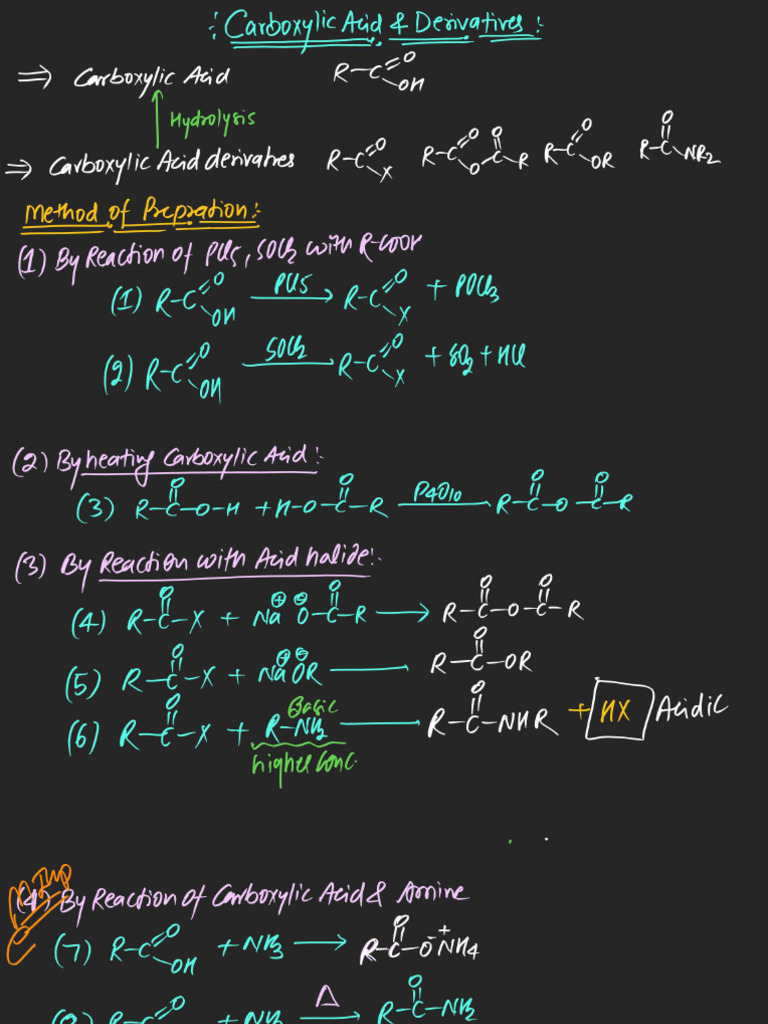 :Carboxylic Acid & Derivatives:
⇒ Carboxylic Acid R-C(=O)-OH
↑ Hydrolysis
⇒ Carboxylic Acid derivatves R-C(=O)-X R-C(=O)-O-C(=O)-R R-C(=O)-OR R-C(=O)-NR2
Method of Prepration:
(1) By Reaction of PCl5, SOCl2 with R-COOH
(1) R-C(=O)-OH —PCl5→ R-C(=O)-X + POCl3
(2) R-C(=O)-OH —SOCl2→ R-C(=O)-X + SO2 + HCl
(2) By heating Carboxylic Acid:
(3) R-C(=O)-O-H + H-O-C(=O)-R —P4O10→ R-C(=O)-O-C(=O)-R
(3) By Reaction with Acid halide:
(4) R-C(=O)-X + Na⊕ ⊖O-C(=O)-R → R-C(=O)-O-C(=O)-R
(5) R-C(=O)-X + Na⊕ ⊖OR → R-C(=O)-OR
Basic
(6) R-C(=O)-X + R-NH2 → R-C(=O)-NHR + HX Acidic
higher Conc.
Imp
(4) By Reaction of Carboxylic Acid & Amine
(7) R-C(=O)-OH + NH3 → R-C(=O)-O⁻ ⁺NH4
R-C(=O) + NH —Δ→ R-C(=O)-NH2